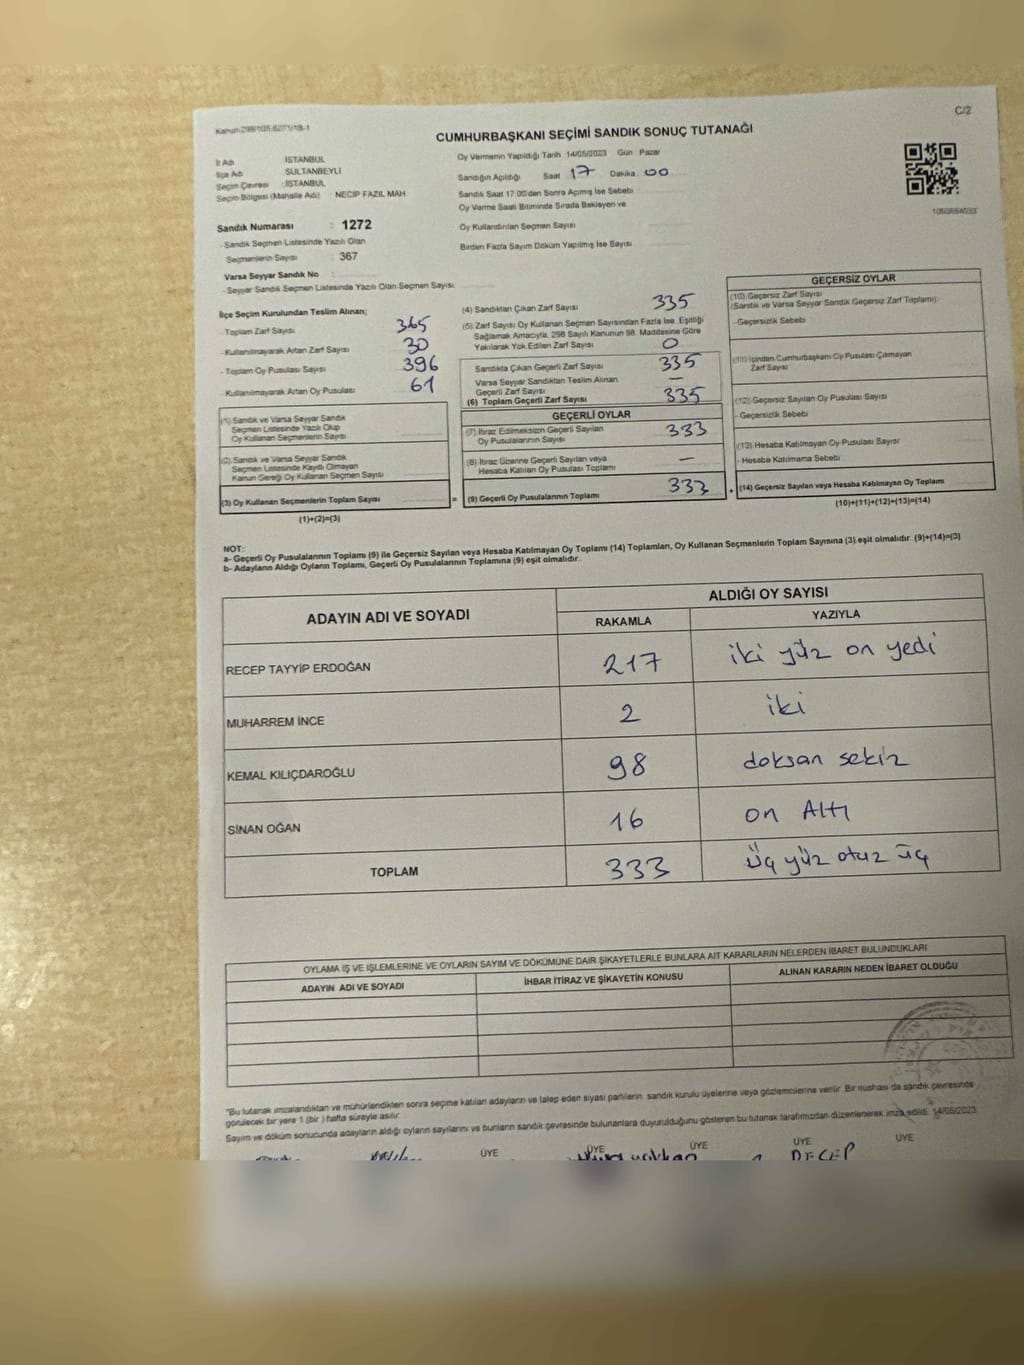 C/2
CUMHURBAŞKANI SEÇİMİ SANDIK SONUÇ TUTANAĞI
İl Adı : İSTANBUL
İlçe Adı : SULTANBEYLİ
Seçim Çevresi : İSTANBUL
Seçim Bölgesi (Mahalle Adı) : NECİP FAZIL MAH.
Oy Vermenin Yapıldığı Tarih 14/05/2023 Gün Pazar
Sandığın Açıldığı Saat 17 Dakika 00
Sandık Saat 17:00'den Sonra Açmış İse Sebebi
Oy Verme Saati Bitiminde Sırada Bekleyen ve
Oy Kullandırılan Seçmen Sayısı
Birden Fazla Sayım Döküm Yapılmış İse Sayısı
Sandık Numarası : 1272
- Sandık Seçmen Listesinde Yazılı Olan
Seçmenlerin Sayısı : 367
Varsa Seyyar Sandık No :
- Seyyar Sandık Seçmen Listesinde Yazılı Olan Seçmen Sayısı:
İlçe Seçim Kurulundan Teslim Alınan;
- Toplam Zarf Sayısı 365
- Kullanılmayarak Artan Zarf Sayısı 30
- Toplam Oy Pusulası Sayısı 396
Kullanılmayarak Artan Oy Pusulası 61
(1) Sandık ve Varsa Seyyar Sandık
Seçmen Listesinde Yazılı Olup
Oy Kullanan Seçmenlerin Sayısı
(2) Sandık ve Varsa Seyyar Sandık
Seçmen Listesinde Kayıtlı Olmayan
Kanun Gereği Oy Kullanan Seçmen Sayısı
(3) Oy Kullanan Seçmenlerin Toplam Sayısı
(1)+(2)=(3)
(4) Sandıktan Çıkan Zarf Sayısı 335
(5) Zarf Sayısı Oy Kullanan Seçmen Sayısından Fazla İse, Eşitliği
Sağlamak Amacıyla, 298 Sayılı Kanunun 98. Maddesine Göre
Yakılarak Yok Edilen Zarf Sayısı 0
Sandıkta Çıkan Geçerli Zarf Sayısı 335
Varsa Seyyar Sandıktan Teslim Alınan
Geçerli Zarf Sayısı —
(6) Toplam Geçerli Zarf Sayısı 335
GEÇERLİ OYLAR
(7) İtiraz Edilmeksizin Geçerli Sayılan
Oy Pusulalarının Sayısı 333
(8) İtiraz Üzerine Geçerli Sayılan veya
Hesaba Katılan Oy Pusulası Toplamı —
= (9) Geçerli Oy Pusulalarının Toplamı 333 +
GEÇERSİZ OYLAR
(10) Geçersiz Zarf Sayısı
(Sandık ve Varsa Seyyar Sandık Geçersiz Zarf Toplamı)
- Geçersizlik Sebebi
(11) İçinden Cumhurbaşkanı Oy Pusulası Çıkmayan
Zarf Sayısı
(12) Geçersiz Sayılan Oy Pusulası Sayısı
- Geçersizlik Sebebi
(13) Hesaba Katılmayan Oy Pusulası Sayısı
- Hesaba Katılmama Sebebi
(14) Geçersiz Sayılan veya Hesaba Katılmayan Oy Toplamı
(10)+(11)+(12)+(13)=(14)
NOT:
a- Geçerli Oy Pusulalarının Toplamı (9) ile Geçersiz Sayılan veya Hesaba Katılmayan Oy Toplamı (14) Toplamları, Oy Kullanan Seçmenlerin Toplam Sayısına (3) eşit olmalıdır. (9)+(14)=(3)
b- Adayların Aldığı Oyların Toplamı, Geçerli Oy Pusulalarının Toplamına (9) eşit olmalıdır.
ADAYIN ADI VE SOYADI ALDIĞI OY SAYISI
RAKAMLA YAZIYLA
RECEP TAYYİP ERDOĞAN 217 iki yüz on yedi
MUHARREM İNCE 2 iki
KEMAL KILIÇDAROĞLU 98 doksan sekiz
SİNAN OĞAN 16 on Altı
TOPLAM 333 Üç yüz otuz üç
OYLAMA İŞ VE İŞLEMLERİNE VE OYLARIN SAYIM VE DÖKÜMÜNE DAİR ŞİKAYETLERLE BUNLARA AİT KARARLARIN NELERDEN İBARET BULUNDUKLARI
ADAYIN ADI VE SOYADI İHBAR İTİRAZ VE ŞİKAYETİN KONUSU ALINAN KARARIN NEDEN İBARET OLDUĞU
*Bu tutanak imzalandıktan ve mühürlendikten sonra seçime katılan adayların ve talep eden siyasi partilerin sandık kurulu üyelerine veya gözlemcilerine verilir. Bir nüshası da sandık çevresinde
görülecek bir yere 1 (bir) hafta süreyle asılır.
Sayım ve döküm sonucunda adayların aldığı oyların sayılarını ve bunların sandık çevresinde bulunanlara duyurulduğunu gösteren bu tutanak tarafımızdan düzenlenerek imza edildi. 14/05/2023
ÜYE ÜYE ÜYE ÜYE ÜYE
RECEP